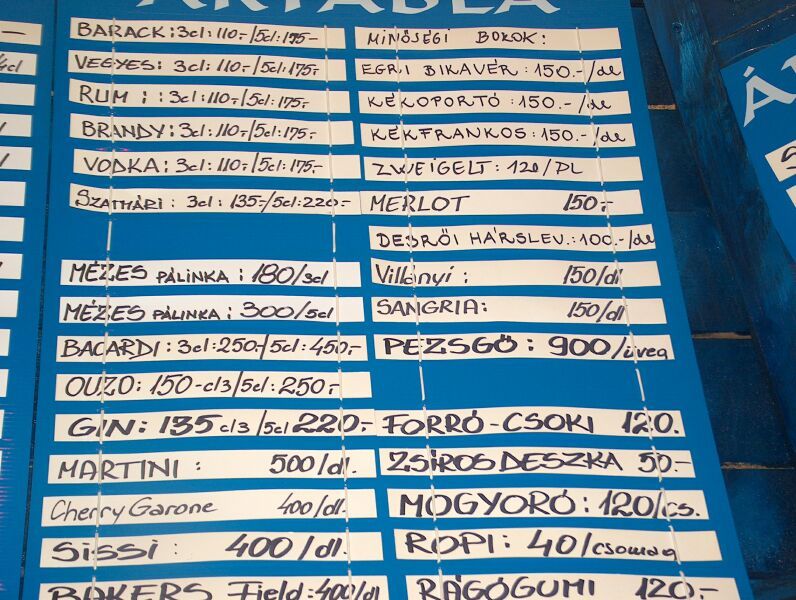 ÁRTÁBLA
BARACK: 3cl: 110,-/5cl: 175-
VEGYES: 3cl: 110,-/5cl: 175,-
RUM : : 3cl: 110,-/5cl: 175,-
BRANDY: 3cl: 110,-/5cl: 175,-
VODKA: 3cl: 110,-/5cl: 175,-
SZATMÁRI: 3cl: 135-/5cl: 220,-
MÉZES PÁLINKA: 180/3cl
MÉZES PÁLINKA: 300/5cl
BACARDI: 3cl: 250,-/5cl: 450,-
OUZO: 150-cl3/5cl: 250,-
GIN: 135 cl3/5cl 220,-
MARTINI : 500/dl.
Cherry Garone 400/dl.
SISSI : 400/dl.
BAKERS Field: 400/dl
MINŐSÉGI BOROK:
EGRI BIKAVÉR: 150.-/dl
KÉKOPORTÓ: 150.-/dl
KÉKFRANKOS: 150.-/dl
ZWEIGELT: 120/DL
MERLOT 150,-
DEBRŐI HÁRSLEV.: 100.-/dl
Villányi : 150/dl
SANGRIA: 150/dl
PEZSGŐ: 900/üveg
FORRÓ-CSOKI 120.
ZSÍROS DESZKA 50.-
MOGYORÓ: 120/cs.
ROPI: 40/csomag
RÁGÓGUMI 120,-